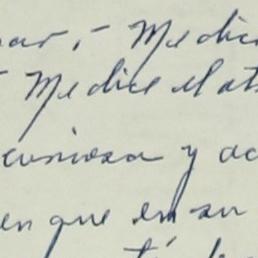 par, - Medic
- Medice el at
curiosa y ac
en que en su